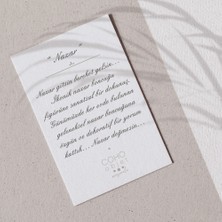 " Nazar "
Nazar gitsin bereket gelsin.
İkonik nazar boncuğu
figürüne sanatsal bir dokunuş.
Günümüzde her evde bulunan
geleneksel nazar boncuğuna
özgün ve dekoratif bir yorum
kattık.....Nazar değmesin....
COHO